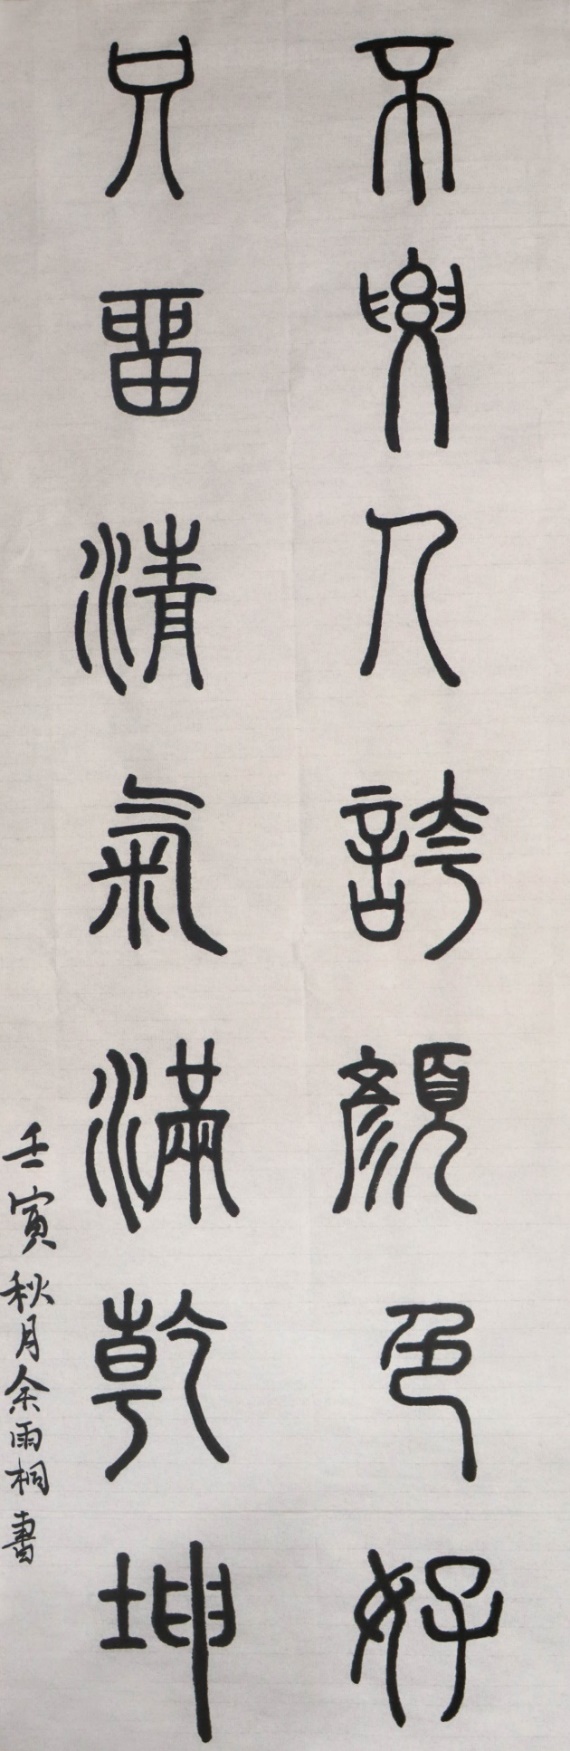 不要人誇顏色好
只留清氣滿乾坤
壬寅秋月余雨桐書